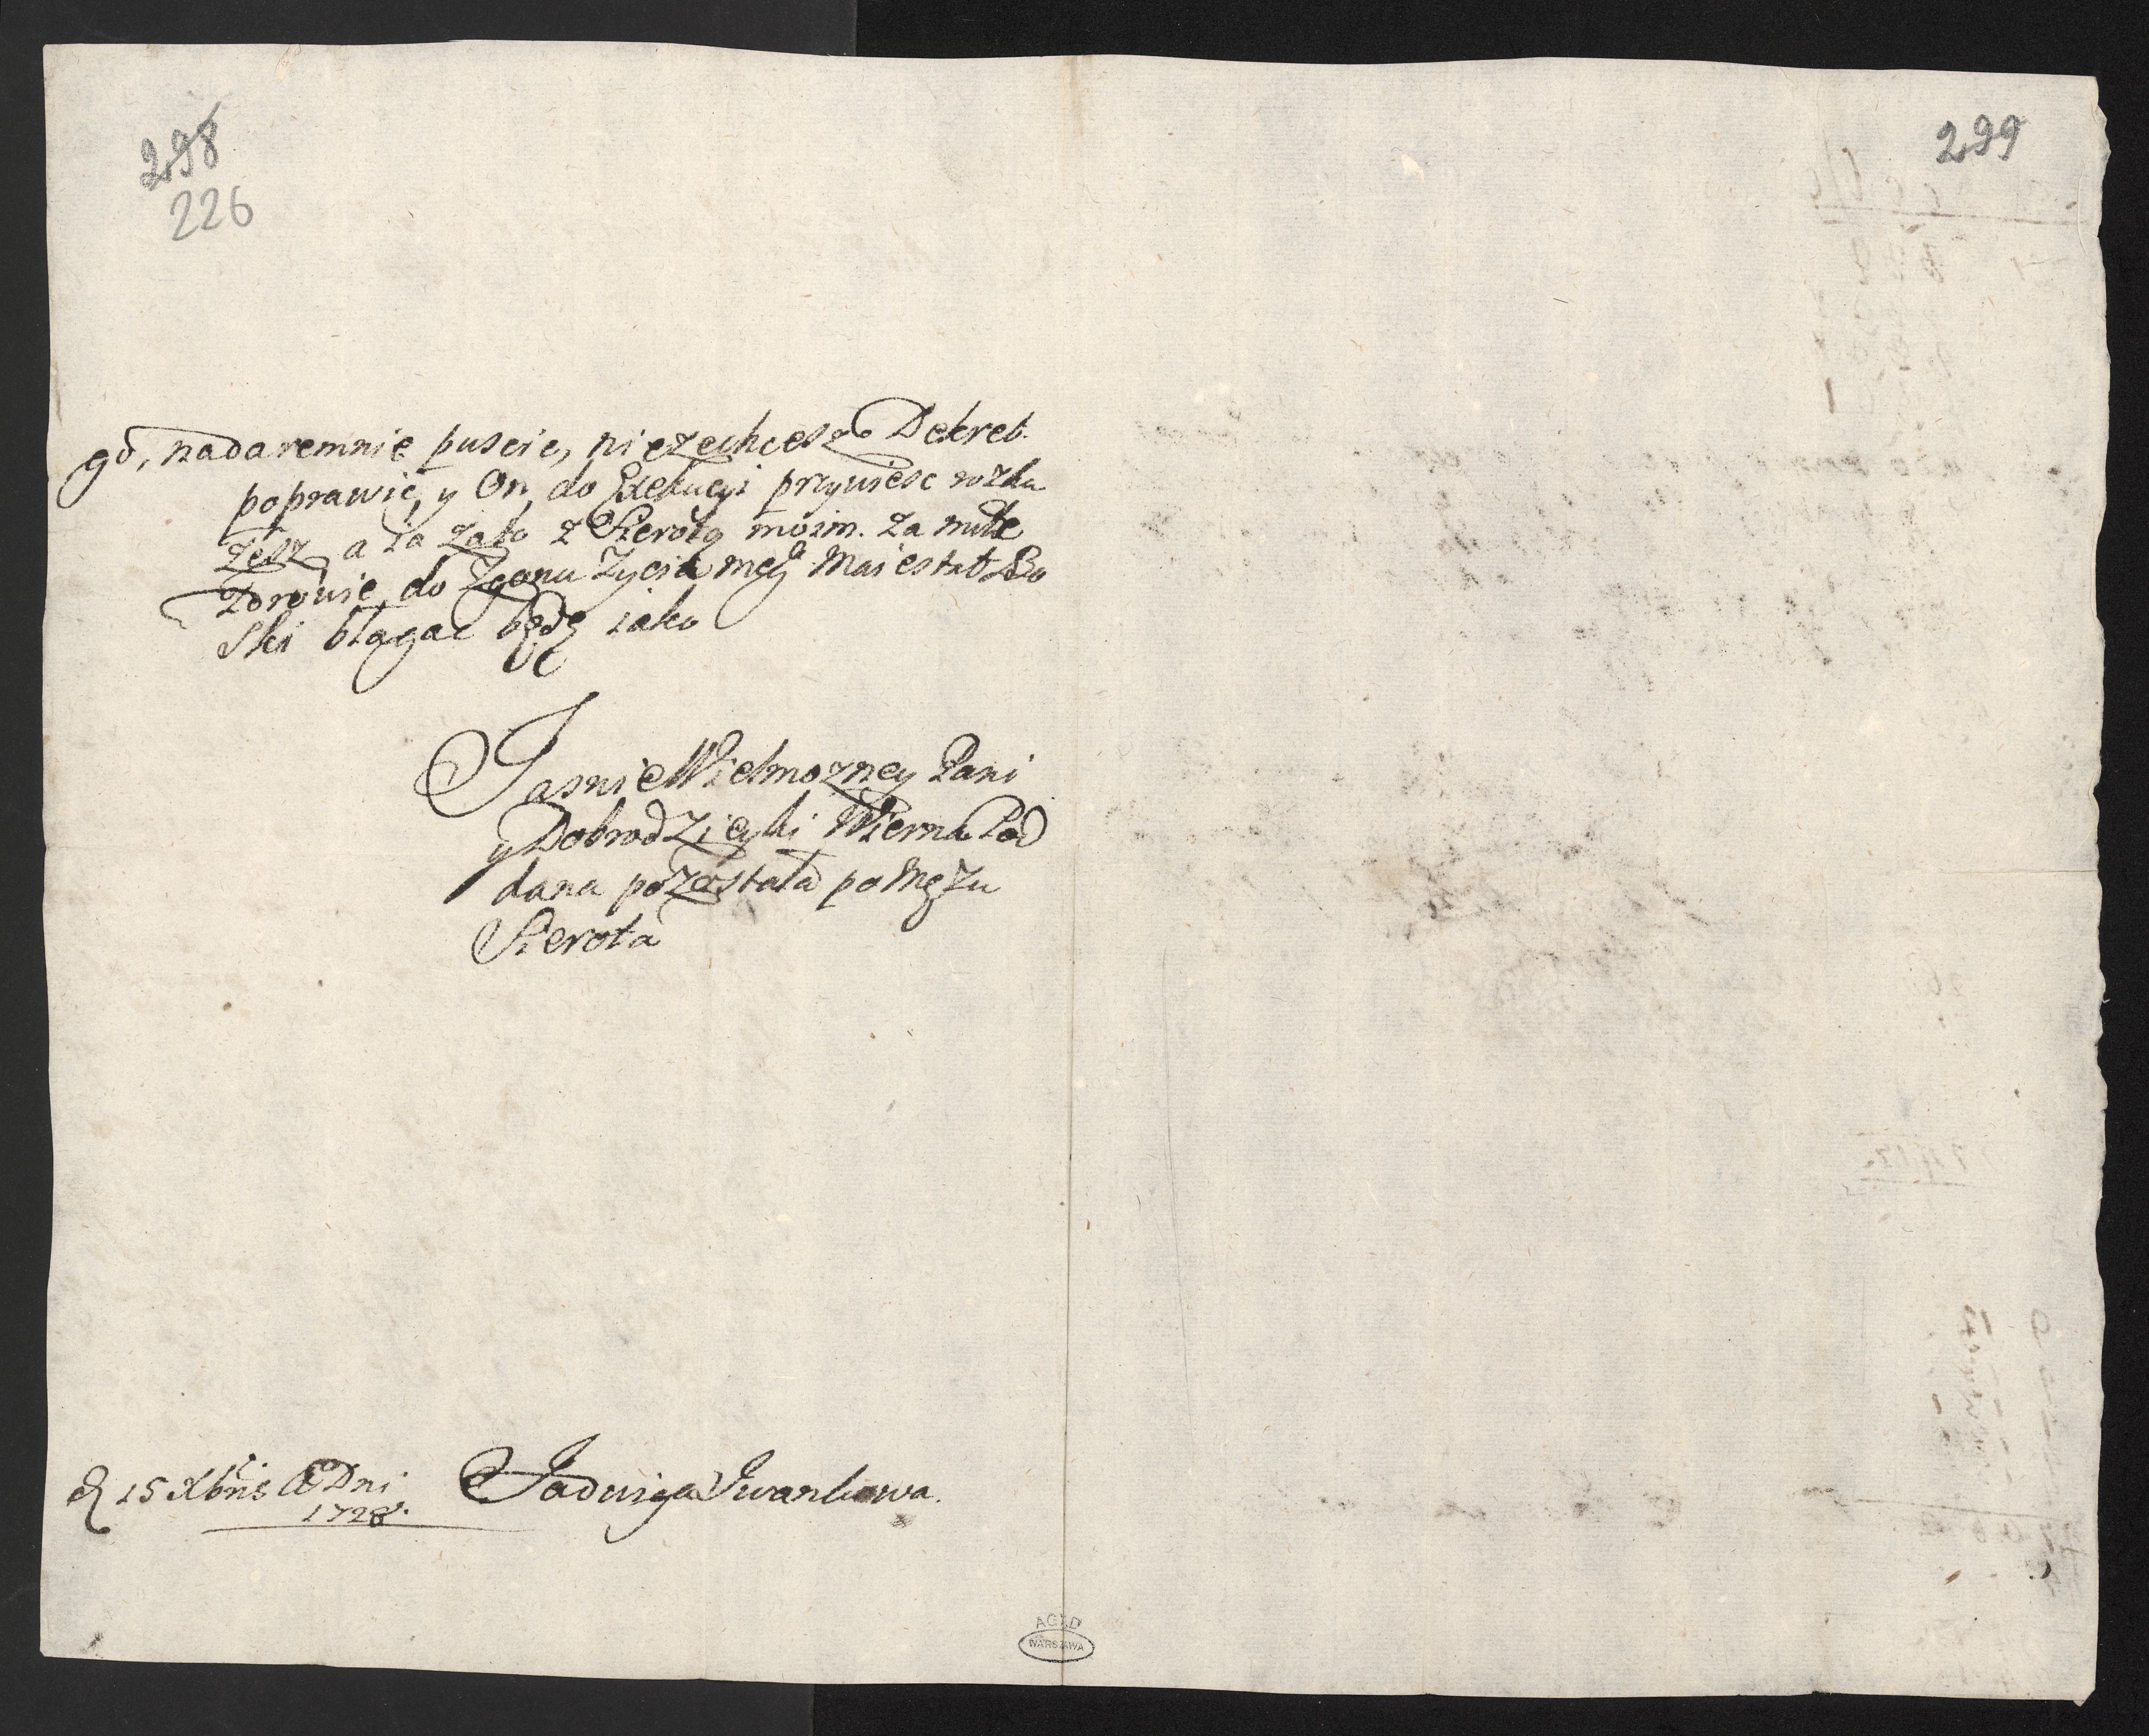 298
226
299
go, nadaremnie puscic, niezechcesz Dekret.
poprawic, y On do Exekucyi przywiesc rozka
zesz, a ia zato z Sierotą moim. za miłe
zdrowie do zgonu Zycia meg° Maiestat Bo
ski błagac będę iako
JasnieWielmozney Pani
y Dobrodzieyki Wierna Pod
dana pozostała po Mężu
Sierota
D 15 Xbris A° Dni
1728.
Jadwiga Iwankowa.
AGAD
WARSZAWA